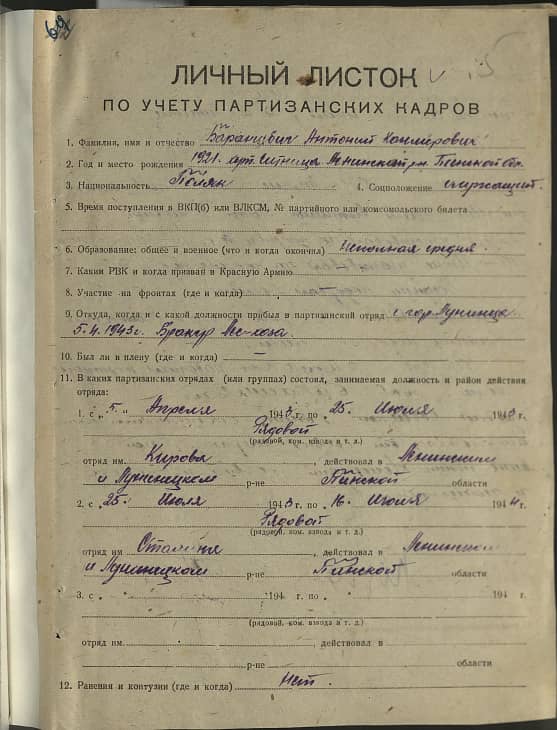 69
ЛИЧНЫЙ ЛИСТОК
ПО УЧЕТУ ПАРТИЗАНСКИХ КАДРОВ
1. Фамилия, имя и отчество Баранович Антоний
2. Год и место рождения 1921. Ситница Ленинский р-н Пинской обл.
3. Национальность Поляк 4. Соцположение служащий.
5. Время поступления в ВКП(б) или ВЛКСМ, № партийного или комсомольского билета
6. Образование: общее и военное (что и когда окончил) Неполная средня.
7. Каким РВК и когда призван в Красную Армию
8. Участие на фронтах (где и когда)
9. Откуда, когда и с какой должности прибыл в партизанский отряд с гор. Лунинца
5.4.1943г. Бракер Лес-хоза.
10. Был ли в плену (где и когда) —
11. В каких партизанских отрядах (или группах) состоял, занимаемая должность и район действия
отряда:
1. с „ 5 „ Апреля 1943 г. по 25. Июля 1943 г.
Рядовой
(рядовой, ком. взвода и т. д.)
отряд им. Кирова, действовал в Ленинском
и Лунинецком р-не Пинской области
2. с 25. Июля 1943 г. по 16. Июля 1944 г.
Рядовой
(рядовой, ком. взвода и т. д.)
отряд им Сталина, действовал в Ленинском
и Лунинецком р-не Пинской области
3. с „ „ 194 г. по „ „ 194 г.
(рядовой, ком. взвода и т. д.)
отряд им. , действовал в
р-не области
12. Ранения и контузии (где и когда) Нет.